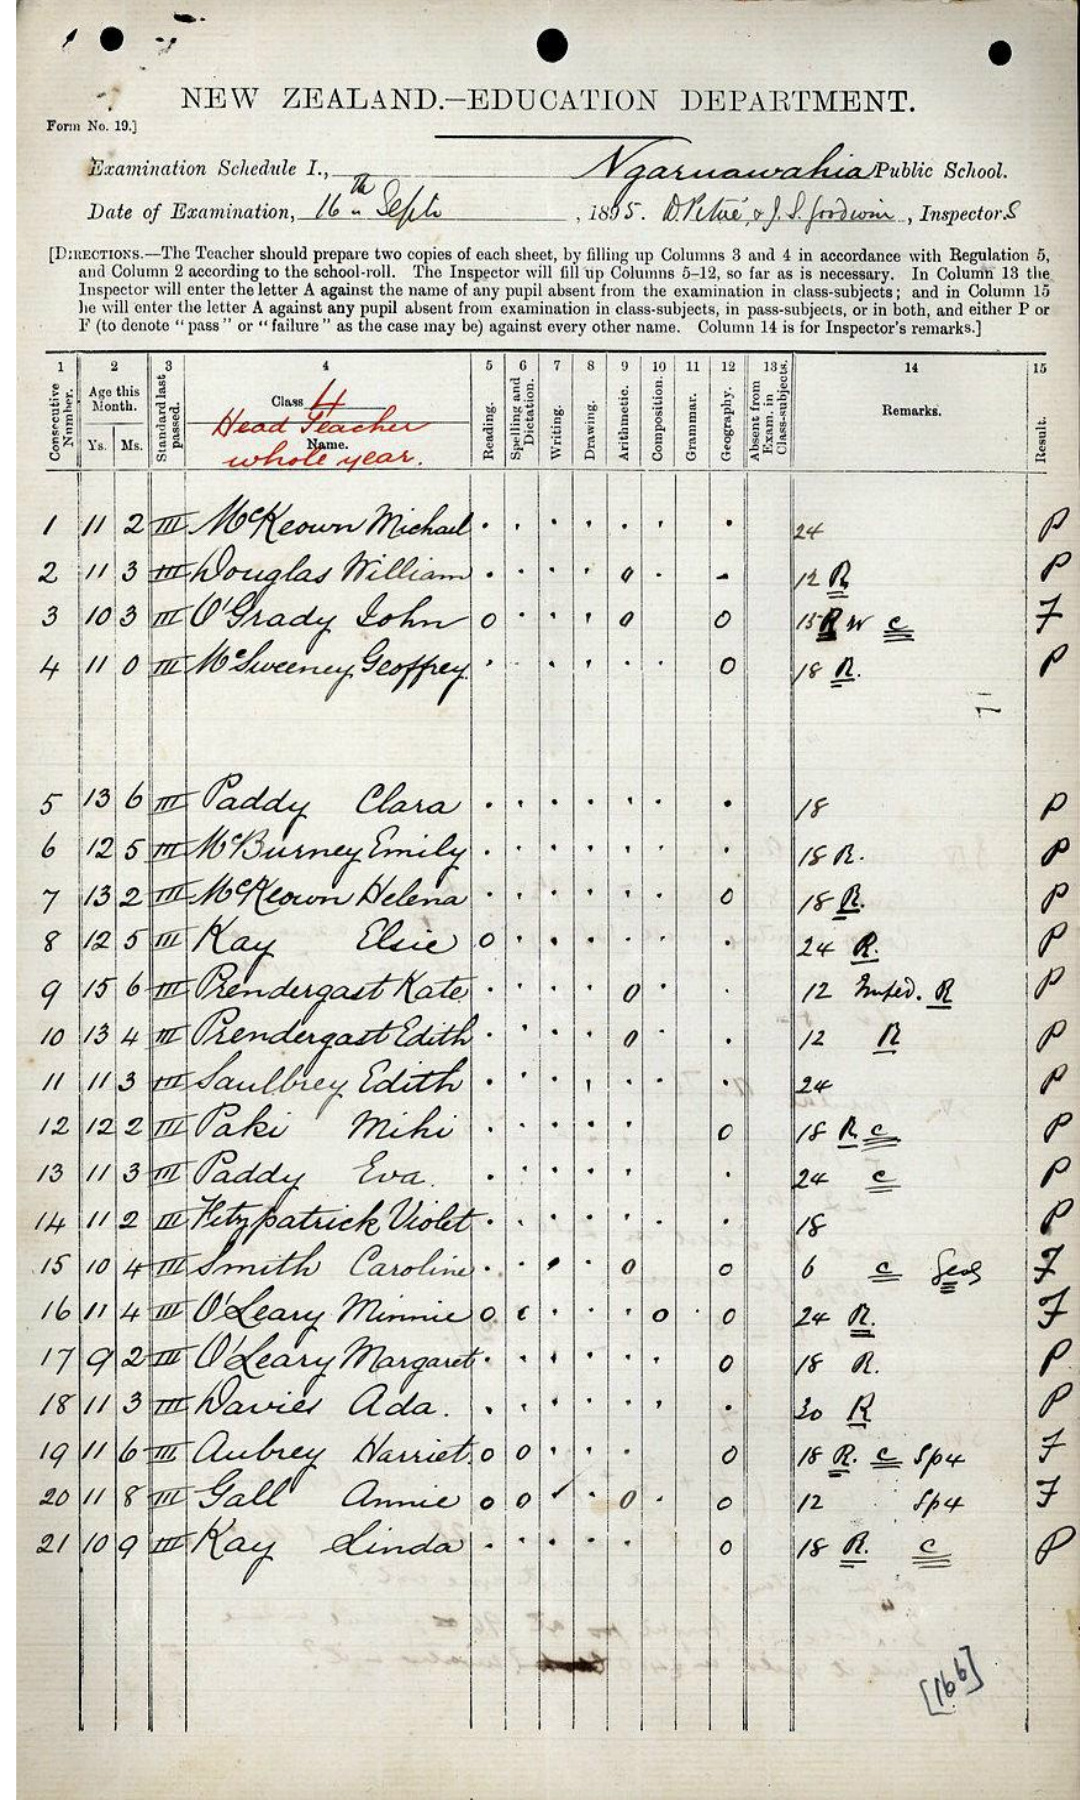 NEW ZEALAND.—EDUCATION DEPARTMENT.
Form No. 19.]
Examination Schedule I., Ngaruawahia Public School.
Date of Examination, 16th Septr , 1895. D. Petrie, & J. S. Goodwin , InspectorS
[DIRECTIONS.—The Teacher should prepare two copies of each sheet, by filling up Columns 3 and 4 in accordance with Regulation 5,
and Column 2 according to the school-roll. The Inspector will fill up Columns 5-12, so far as is necessary. In Column 13 the
Inspector will enter the letter A against the name of any pupil absent from the examination in class-subjects; and in Column 15
he will enter the letter A against any pupil absent from examination in class-subjects, in pass-subjects, or in both, and either P or
F (to denote "pass" or "failure" as the case may be) against every other name. Column 14 is for Inspector's remarks.]
1 2 3 4 5 6 7 8 9 10 11 12 13 14 15
Consecutive Number. Age this Month. Ys. Ms. Standard last passed. Class 4 Head Teacher Name. whole year. Reading. Spelling and Dictation. Writing. Drawing. Arithmetic. Composition. Grammar. Geography. Absent from Exam. in Class-subjects. Remarks. Result.
1 11 2 III McKeown Michael . . . . . . . 24 P
2 11 3 III Douglas William . . . . 0 . - 12 R P
3 10 3 III O'Grady John 0 . . . 0 0 15 R W c F
4 11 0 III McSweeney Geoffrey . . . . . . 0 18 R. P
5 13 6 III Paddy Clara . . . . . . . 18 P
6 12 5 III McBurney Emily . . . . . . . 18 R. P
7 13 2 III McKeown Helena . . . . . . 0 18 R. P
8 12 5 III Kay Elsie 0 . . . . . . 24 R. P
9 15 6 III Prendergast Kate . . . . 0 . . 12 Imped. R P
10 13 4 III Prendergast Edith . . . . 0 . . 12 R P
11 11 3 III Saulbrey Edith . . . . . . . 24 P
12 12 2 III Paki Mihi . . . . . 0 18 R c P
13 11 3 III Paddy Eva. . . . . . . 24 c P
14 11 2 III Fitzpatrick Violet . . . . . . . 18 P
15 10 4 III Smith Caroline . . . . 0 0 6 c Geog F
16 11 4 III O'Leary Minnie 0 c . . . 0 . 0 24 R. F
17 9 2 III O'Leary Margaret . . . . . . 0 18 R. P
18 11 3 III Davies Ada. . . . . . . . 30 R P
19 11 6 III Aubrey Harriet. 0 0 . . . 0 18 R. c Sp4 F
20 11 8 III Gall Annie 0 0 . 0 . 0 12 Sp4 F
21 10 9 III Kay Linda . . . . . 0 18 R. c P
[166]